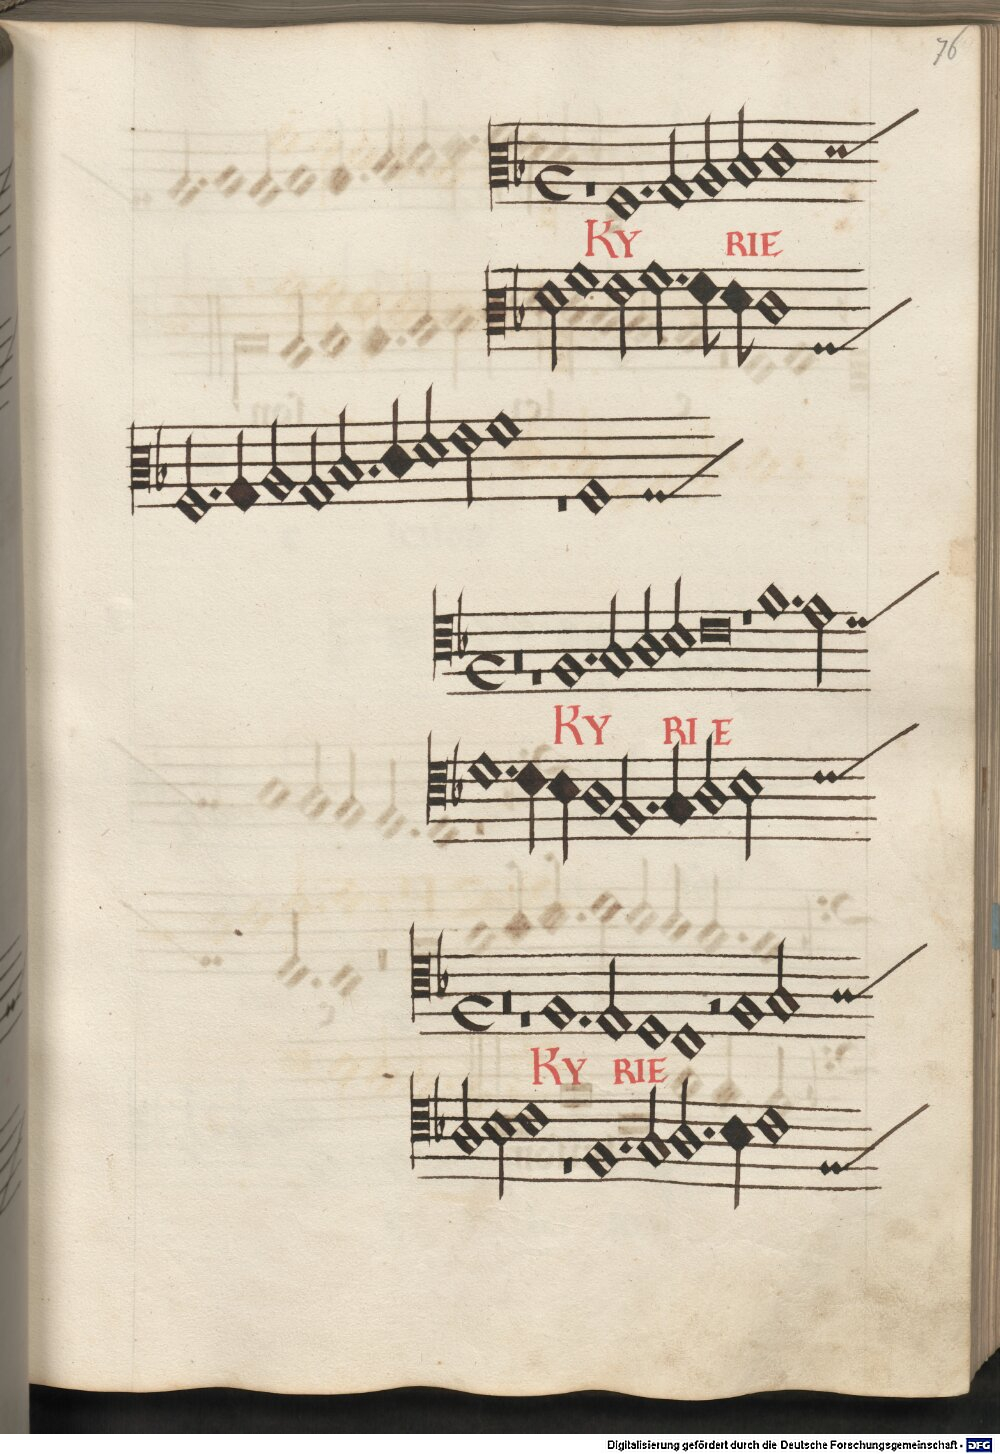 76
KY RIE
KY RI E
KY RIE
Digitalisierung gefördert durch die Deutsche Forschungsgemeinschaft - DFG